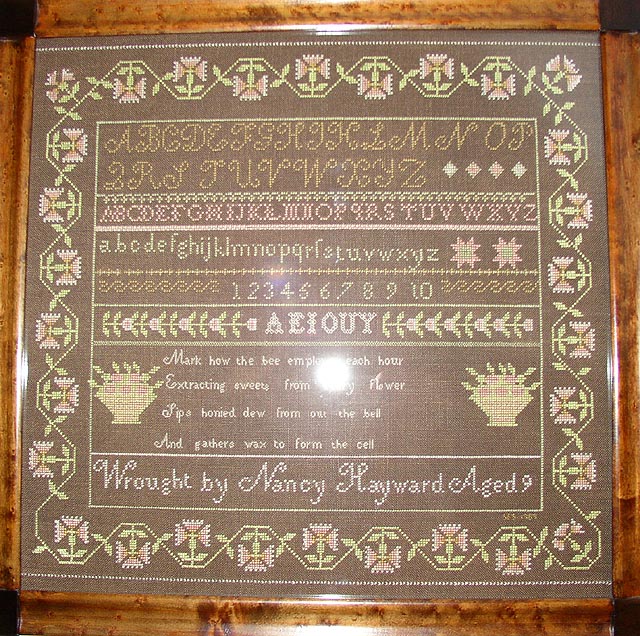 ABCDEFGHIKLMNOP
QRSTUVWXYZ
ABCDEFGHIJKLMNOPQRSTUVWXYZ
abcdefghijklmnopqrſstuvwxyz
1 2 3 4 5 6 7 8 9 10
AEIOUY
Mark how the bee employs each hour
Extracting sweets from flower
Sips honied dew from out the bell
And gathers wax to form the cell
Wrought by Nancy Hayward Aged 9